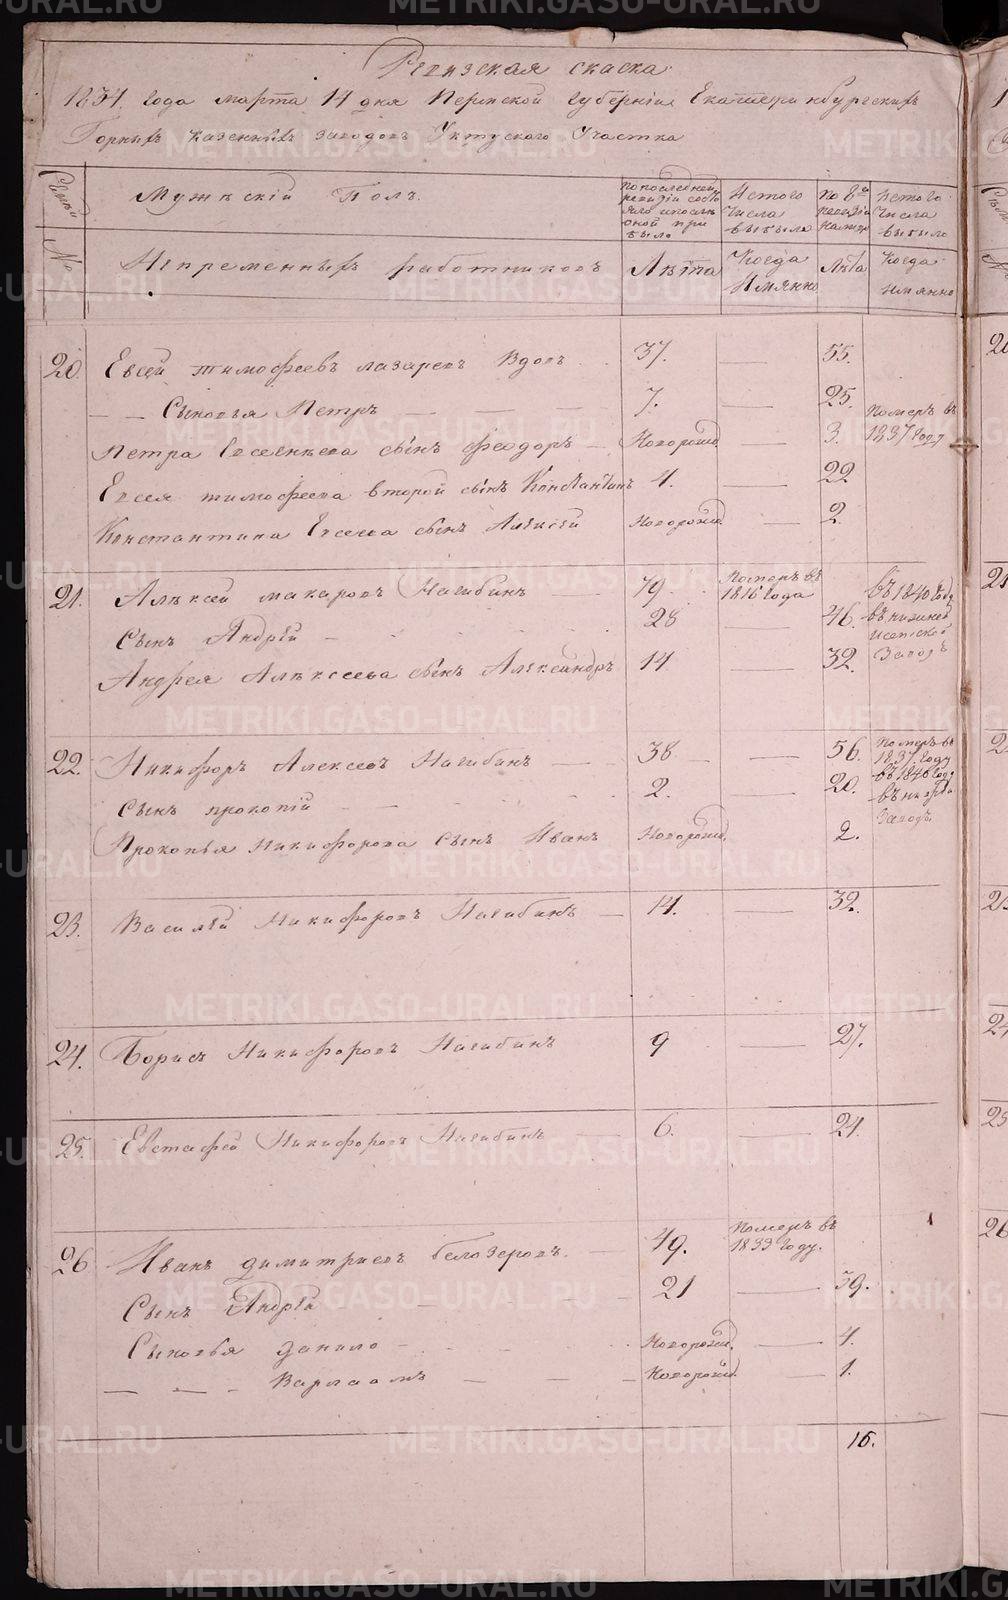 Ревизская скаска
1834 года марта 14 дня Пермской губернии Екатеринбургскихъ
Горныхъ казенныхъ заводовъ Уктуского Участка
Семьи №
Мужескій Полъ.
По последней ревизіи состояло и после оной прибыло
Исъ того числа выбыло
По 8й ревизіи налицо
Исъ того числа выбыло
Непременныхъ работниковъ
Лета
Когда Имянно
Лета
Когда имянно
20. Евсей тимофеевъ лазаревъ Вдовъ 37. 55.
Сыновья Петръ 7. 25. Померъ въ 1837 году
Петра Евсеевнева сынъ феодоръ Новорожд. 3.
Евсея тимофеева второй сынъ Константинъ 4. 22
Константина Евсеева сынъ Алексей Новорожд. 2.
21. Алексей макаровъ Нагибинъ 79. Померъ въ 1816 года
Сынъ Андрей 28 46. въ 1840 году въ нижней Исетской Заводъ
Андрея Алексеева сынъ Александръ 14 32.
22. Никифоръ Алексеевъ Нагибинъ 38 56. Померъ въ 1837 году
Сынъ прокопій 2. 20. въ 1840 году въ нижней Заводъ.
Прокопья Никифорова сынъ Иванъ Новорожд. 2.
23. Василей Никифоровъ Нагибинъ 14. 32.
24. Борисъ Никифоровъ Нагибинъ 9 27.
25. Евстафей Никифоровъ Нагибинъ 6. 24.
26 Иванъ димитриевъ белозеровъ. 49. Померъ въ 1833 году.
Сынъ Андрей 21 39.
Сыновья данило Новорожд. 4.
Варлаамъ Новорожд. 1.
16.